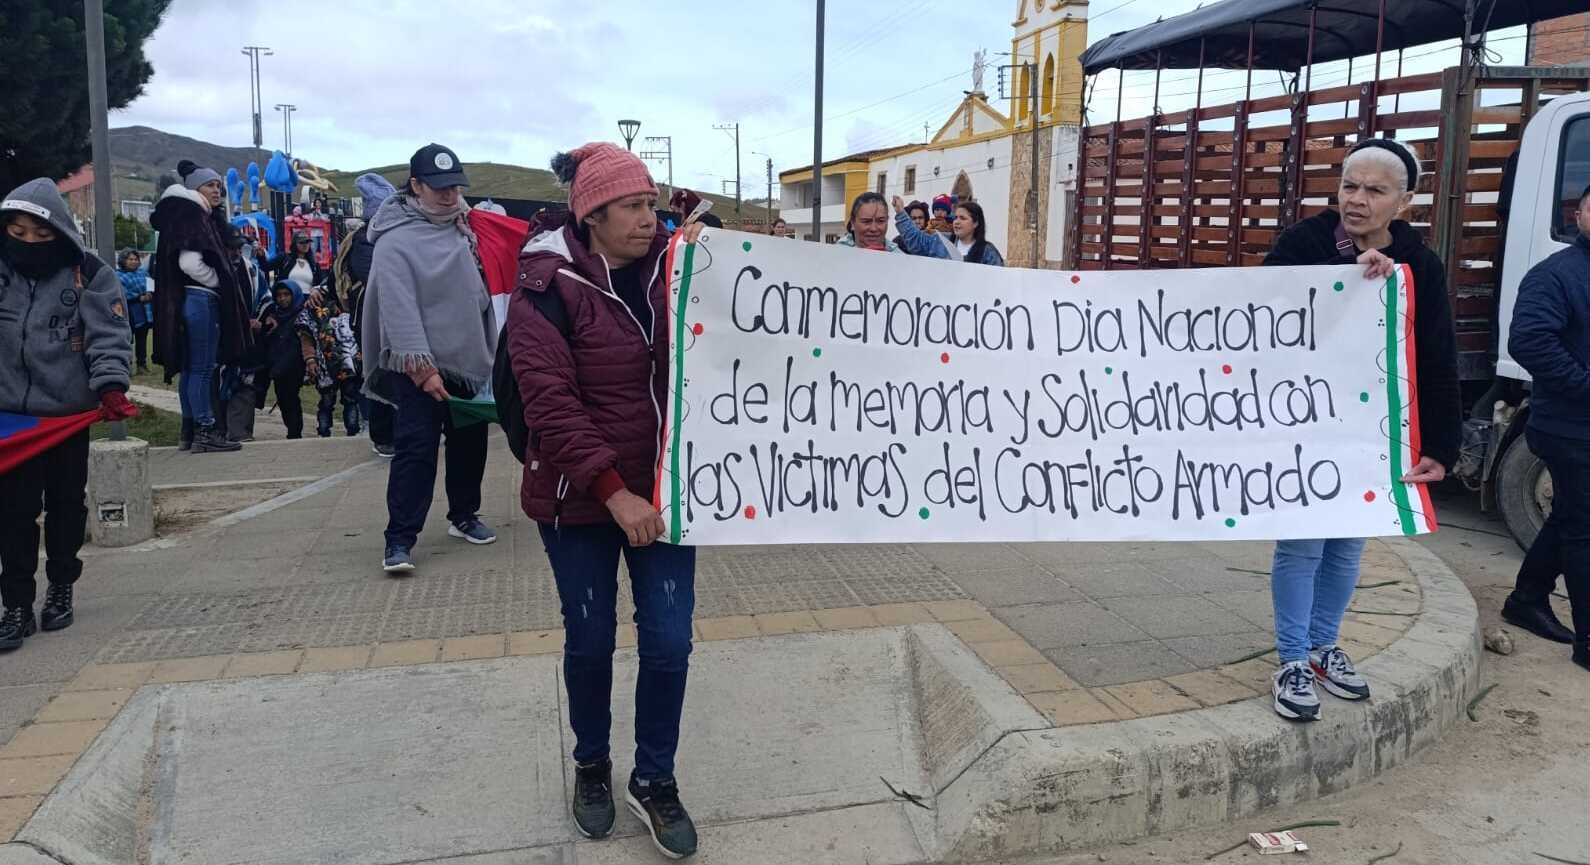 Conmemoración Dia Nacional
de la memoria y Solidaridad con
las Victimas del Conflicto Armado